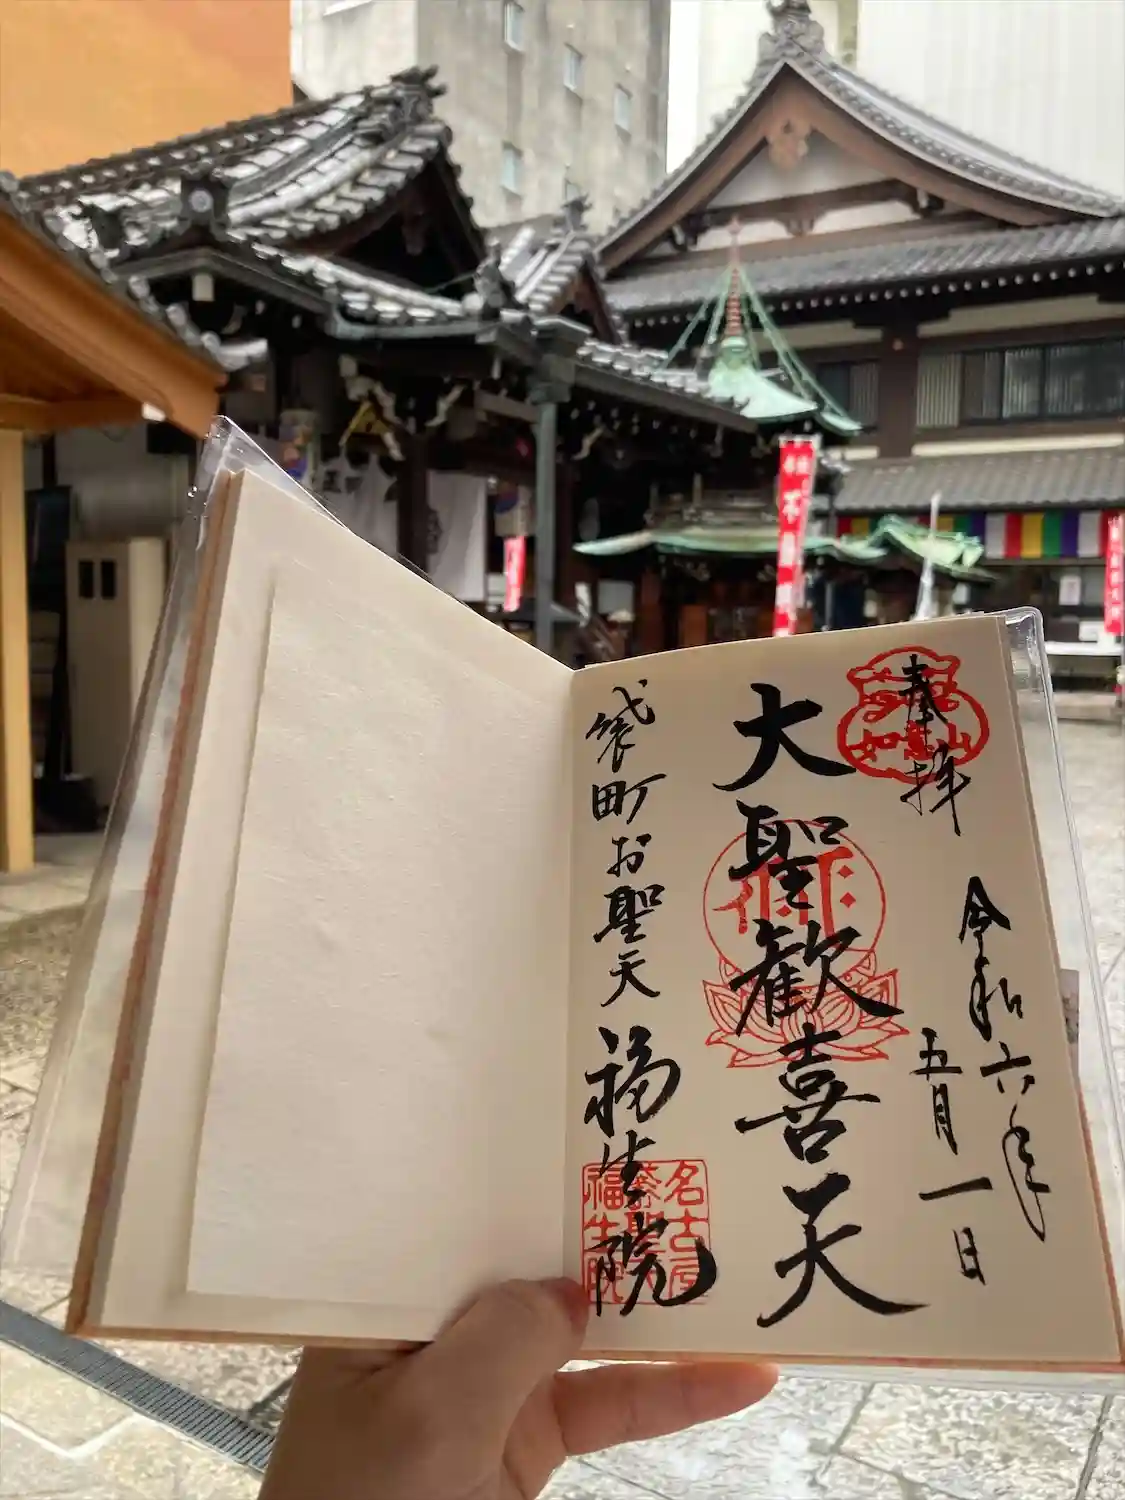 奉拝
如意山
令和六年
五月一日
大聖歓喜天
袋町お聖天
福生院
名古屋
袋聖天
福生院
不